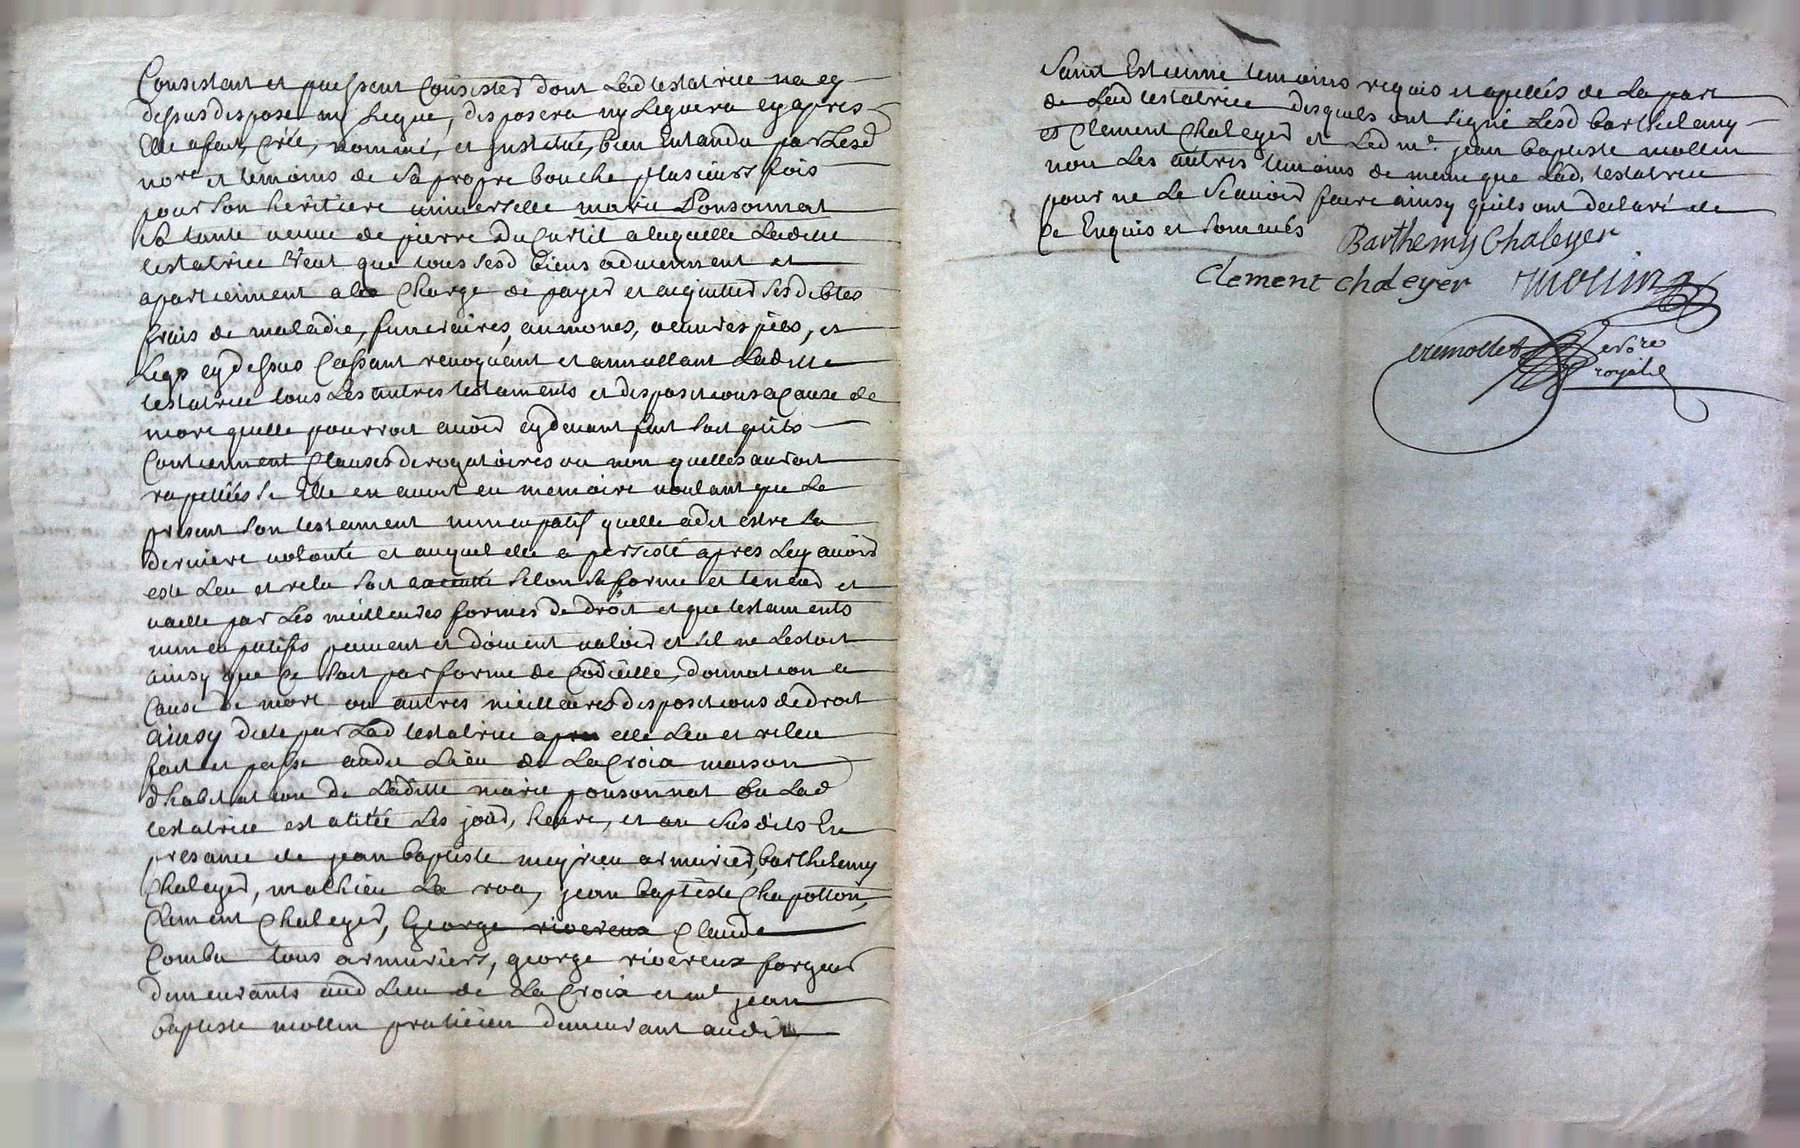 Consistant et puissent Consister dont Lad testatrice na cy
dessus disposé ny Legué, disposera ny Leguera cy apres
Elle a fait, créé, nommé, et Institué, bien Entandu par Lesd
nore et temoins de Sa propre bouche plusieurs fois
pour Son heritiere universelle marie Ponsonnat
sa tante veuve de pierre Du Curtil a laquelle Laditte
testatrice Veut que tous sesd biens adviennent et
apartiennent a la Charge de payer et acquitter Ses debtes
frais de maladie, funeraires, aumones, oeuvres pies, et
Legs cy dessus Cassant revoquant et annullant Laditte
testatrice tous Les autres testaments et dispositions a Cause de
mort quelle pourroit avoir cy devant fait Soit quils
Contiennent Clauses derogatoires ou non quelles auroit
rapellées Si Elle en avoit eu memoire voulant que Le
present Son testament nuncupatif quelle a dit estre Sa
derniere volonté et auquel elle a persisté apres Luy avoir
esté Leu et relu Soit executté Selon Sa forme et teneur et
vaille par Les meilleures formes de droit et que testaments
nuncupatifs peuvent et doivent valoir et Sil ne Lestoit
ainsy que Ce Soit par forme de Codicille, donnation a
Cause de mort ou autres meilleures dispositions de droit
ainsy dicté par Lad testatrice a elle Leu et releu
fait et passé audit Lieu de La Croix maison
d'habitation de Laditte marie ponsonnat ou Lad
testatrice est alitée Les jour, heure, et an Susdits En
presance de jean baptiste meyrieu armurier, barthelemy
Chaleyer, mathieu La roa, jean baptiste Chapotton,
Clement Chaleyer, George rivereux Claude
Combe tous armuriers, george rivereux forgeur
demeurants aud Lieu de La Croix et mr jean
baptiste mollin praticien demeurant audit
Saint Estienne temoins requis et apellés de La part
de Lad testatrice desquels ont Signé Lesd barthelemy
et Clement Chaleyer et Led mr. jean baptiste mollin
non Les autres temoins de meme que Lad. testatrice
pour ne Le Scavoir faire ainsy quils ont declaré de
Ce Enquis et Sommés
Barthemy Chaleyer
Clement chaleyer mollin
cremollet nore
royal